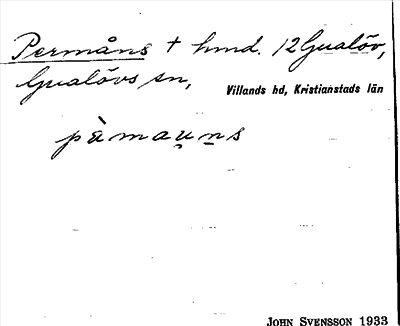 Permåns + hmd. 12 Gualöv,
Gualövs sn,
Villands hd, Kristianstads län
pàmau̯n̲s
JOHN SVENSSON 1933